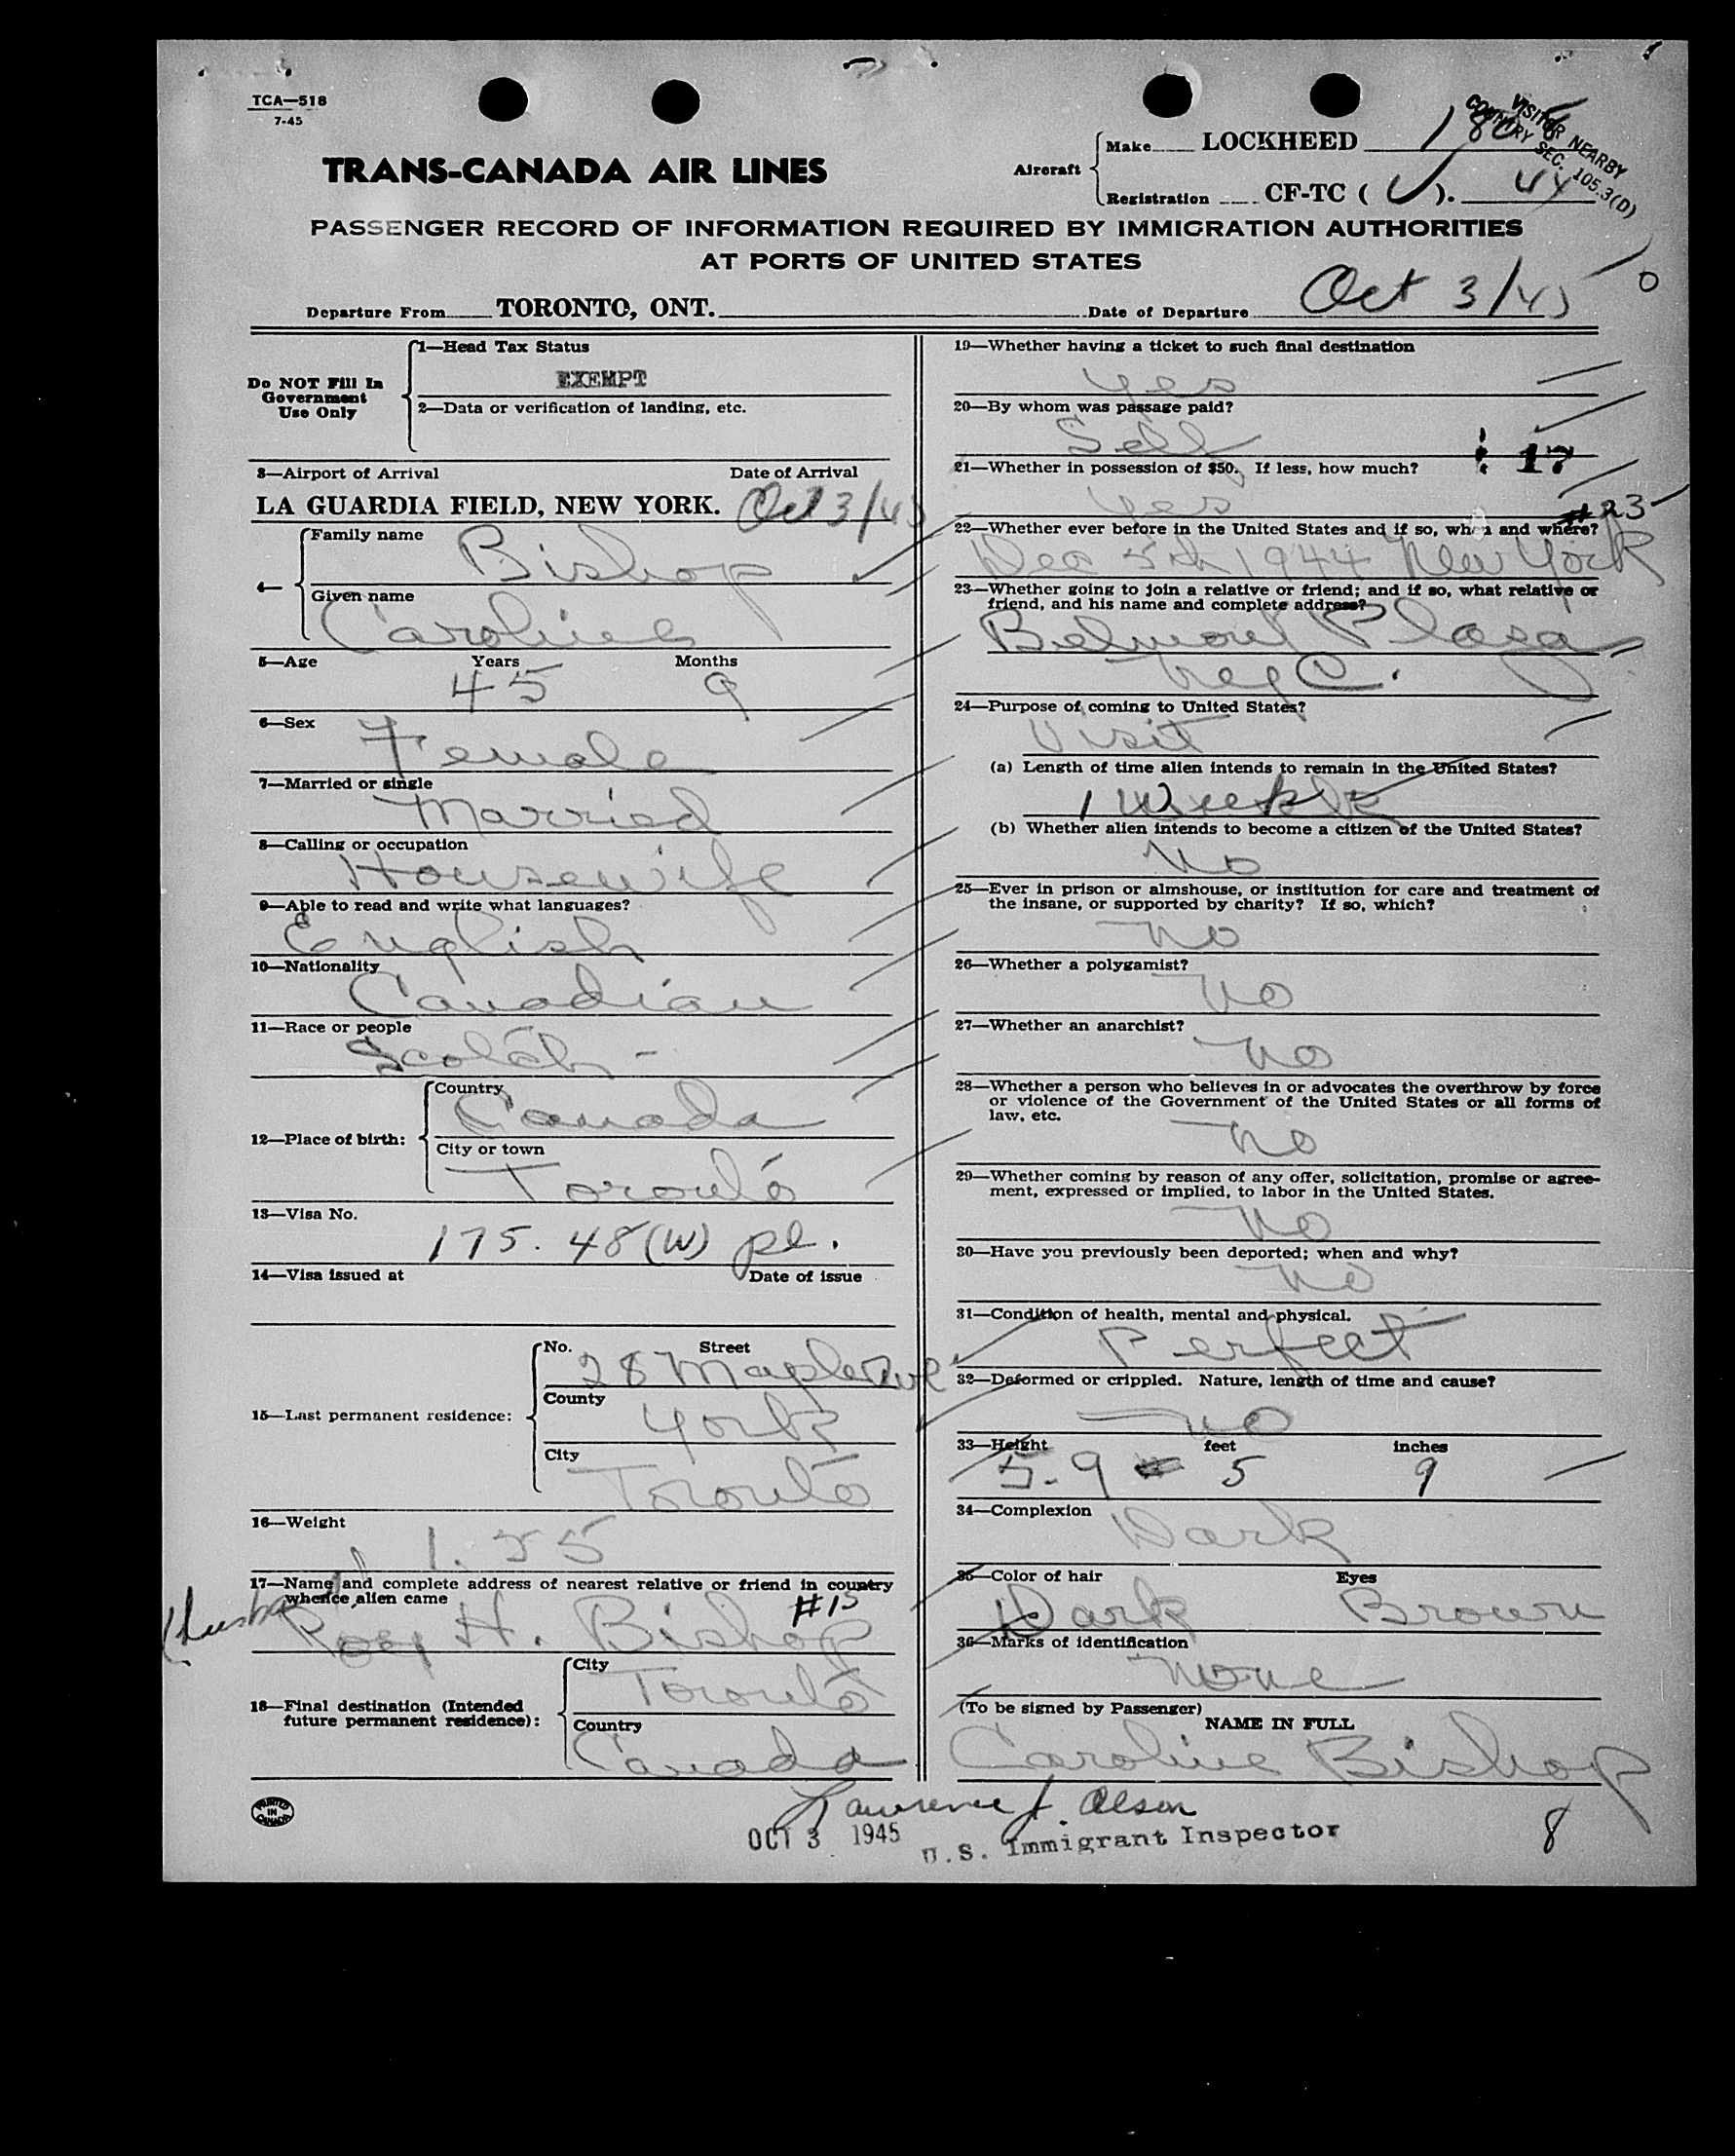 TCA—518
7-45
VISITOR NEARBY
COUNTRY SEC. 105.3(D)
TRANS-CANADA AIR LINES
Aircraft
Make LOCKHEED
Registration CF-TC ( ).
PASSENGER RECORD OF INFORMATION REQUIRED BY IMMIGRATION AUTHORITIES
AT PORTS OF UNITED STATES
Departure From TORONTO, ONT. Date of Departure Oct 3/45
Do NOT Fill In
Government
Use Only
1—Head Tax Status
EXEMPT
2—Data or verification of landing, etc.
3—Airport of Arrival Date of Arrival
LA GUARDIA FIELD, NEW YORK. Oct 3/45
4— Family name
Bishop
Given name
Caroline
5—Age Years Months
45 9
6—Sex
Female
7—Married or single
Married
8—Calling or occupation
Housewife
9—Able to read and write what languages?
English
10—Nationality
Canadian
11—Race or people
Scotch -
12—Place of birth:
Country
Canada
City or town
Toronto
13—Visa No.
175. 48 (W) pl.
14—Visa issued at Date of issue
15—Last permanent residence:
No. Street
28 Maple Ave
County
York
City
Toronto
16—Weight
1.55
17—Name and complete address of nearest relative or friend in country
whence alien came #15
(Husband
Roy H. Bishop
18—Final destination (Intended
future permanent residence):
City
Toronto
Country
Canada
19—Whether having a ticket to such final destination
Yes
20—By whom was passage paid?
Self
17
21—Whether in possession of $50. If less, how much?
Yes
#23
22—Whether ever before in the United States and if so, when and where?
Dec 5th 1944 New York
23—Whether going to join a relative or friend; and if so, what relative or
friend, and his name and complete address?
Belmont Plaza
N.Y.C.
24—Purpose of coming to United States?
Visit
(a) Length of time alien intends to remain in the United States?
1 Week
(b) Whether alien intends to become a citizen of the United States?
No
25—Ever in prison or almshouse, or institution for care and treatment of
the insane, or supported by charity? If so, which?
No
26—Whether a polygamist?
No
27—Whether an anarchist?
No
28—Whether a person who believes in or advocates the overthrow by force
or violence of the Government of the United States or all forms of
law, etc.
No
29—Whether coming by reason of any offer, solicitation, promise or agree-
ment, expressed or implied, to labor in the United States.
No
30—Have you previously been deported; when and why?
No
31—Condition of health, mental and physical.
Perfect
32—Deformed or crippled. Nature, length of time and cause?
No
33—Height feet inches
5-9 5 9
34—Complexion
Dark
35—Color of hair Eyes
Dark Brown
36—Marks of identification
None
(To be signed by Passenger)
NAME IN FULL
Caroline Bishop
PRINTED
IN
CANADA
Lawrence J. Olson
OCT 3 1945 U.S. Immigrant Inspector
8